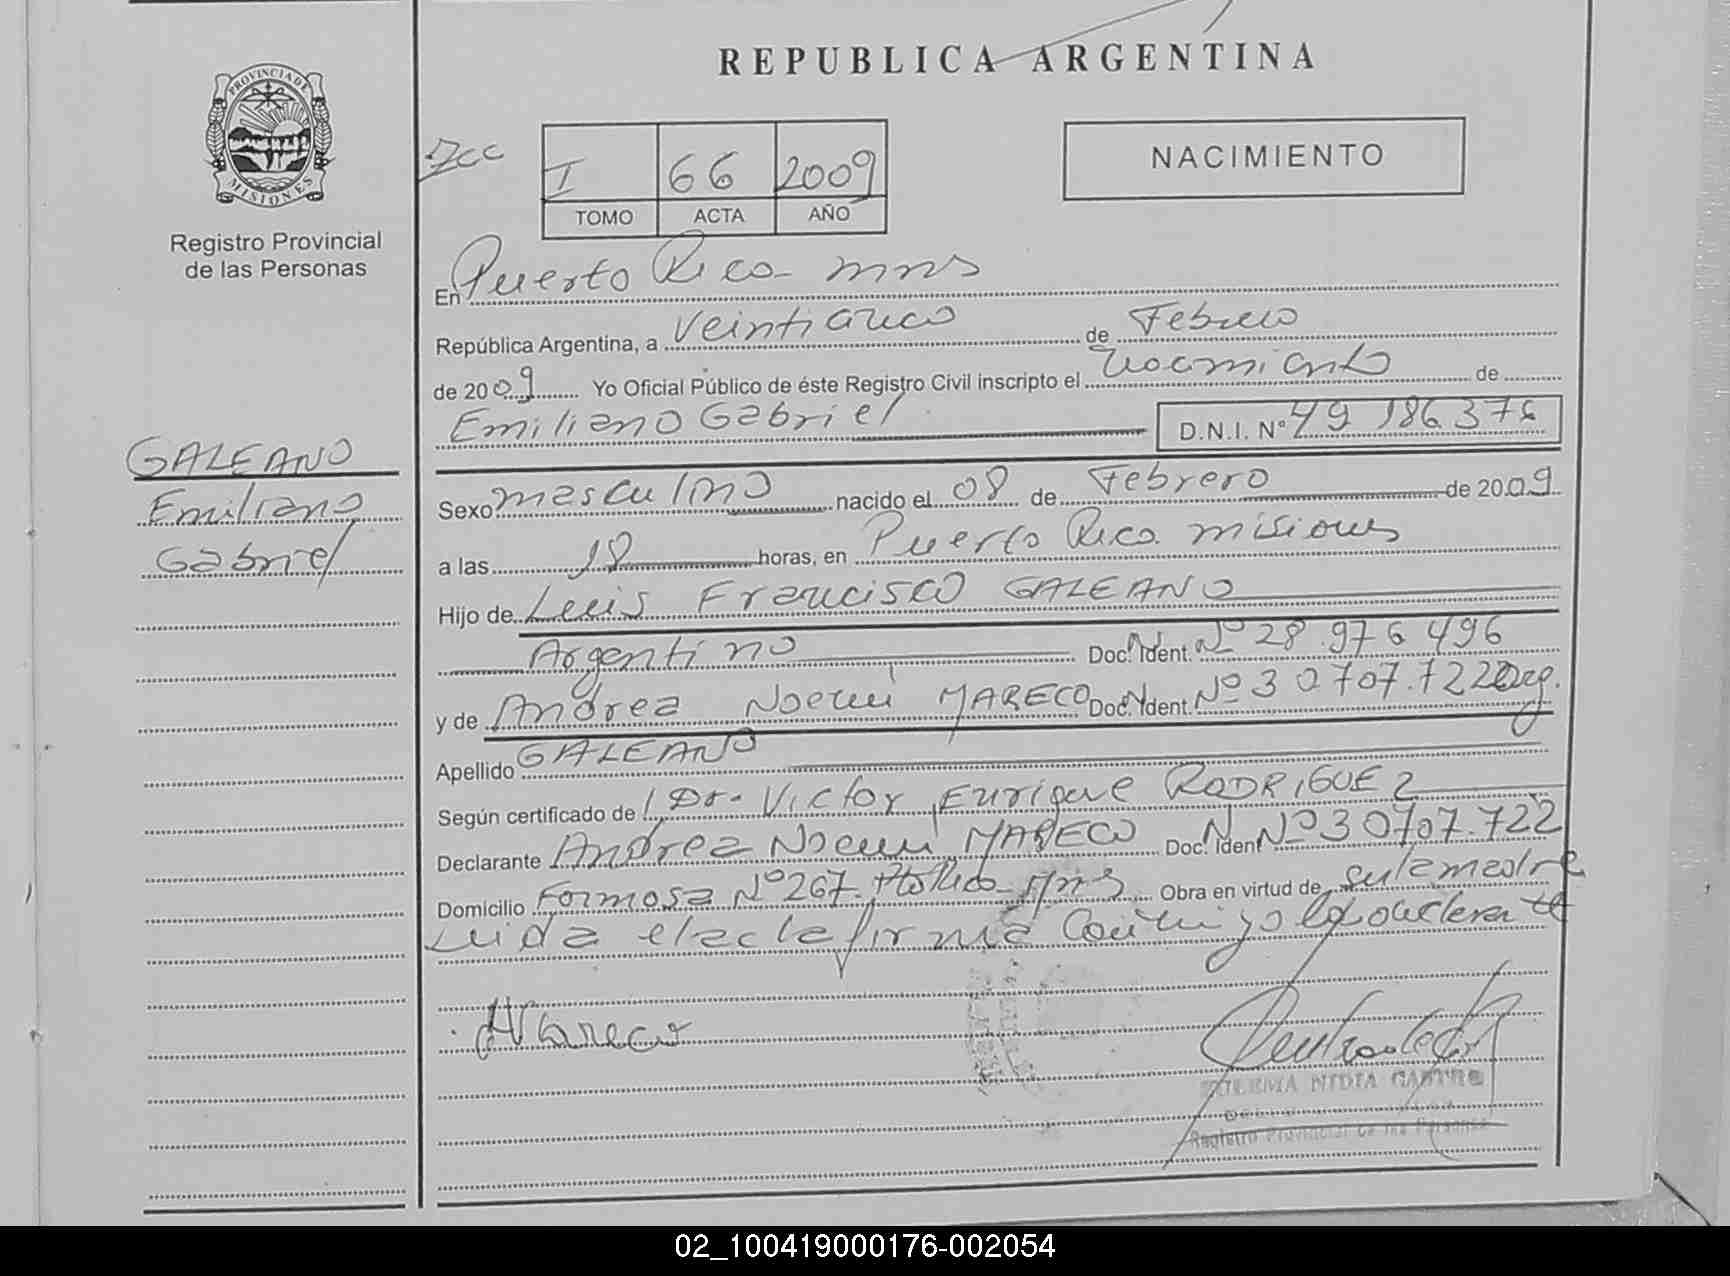 REPUBLICA ARGENTINA
PROVINCIA DE
MISIONES
Registro Provincial
de las Personas
I 66 2009
TOMO ACTA AÑO
NACIMIENTO
En Puerto Rico mns
República Argentina, a Veinticinco de Febrero
de 2009 Yo Oficial Público de éste Registro Civil inscripto el Nacimiento de
Emiliano Gabriel D.N.I. Nº 49 186 376
GALEANO
Emiliano
Gabriel
Sexo masculino nacido el 08 de Febrero de 2009
a las 18 horas, en Puerto Rico misiones
Hijo de Luis Francisco GALEANO
Argentino Doc. Ident. Nº 28.976 496
y de Andrea Noemi MARECO Doc. Ident. Nº 30707.722 Arg.
Apellido GALEANO
Según certificado de Dr. Victor Enrique RODRIGUEZ
Declarante Andrea Noemi MARECO Doc. Ident Nº 30707.722
Domicilio Formosa Nº 267 Pto Rico Mns Obra en virtud de ser la madre
Leida el acta firma conmigo la declarante
AMareco
ZULEMA NIDIA CASTRO
Registro Provincial de las Personas
02_100419000176-002054